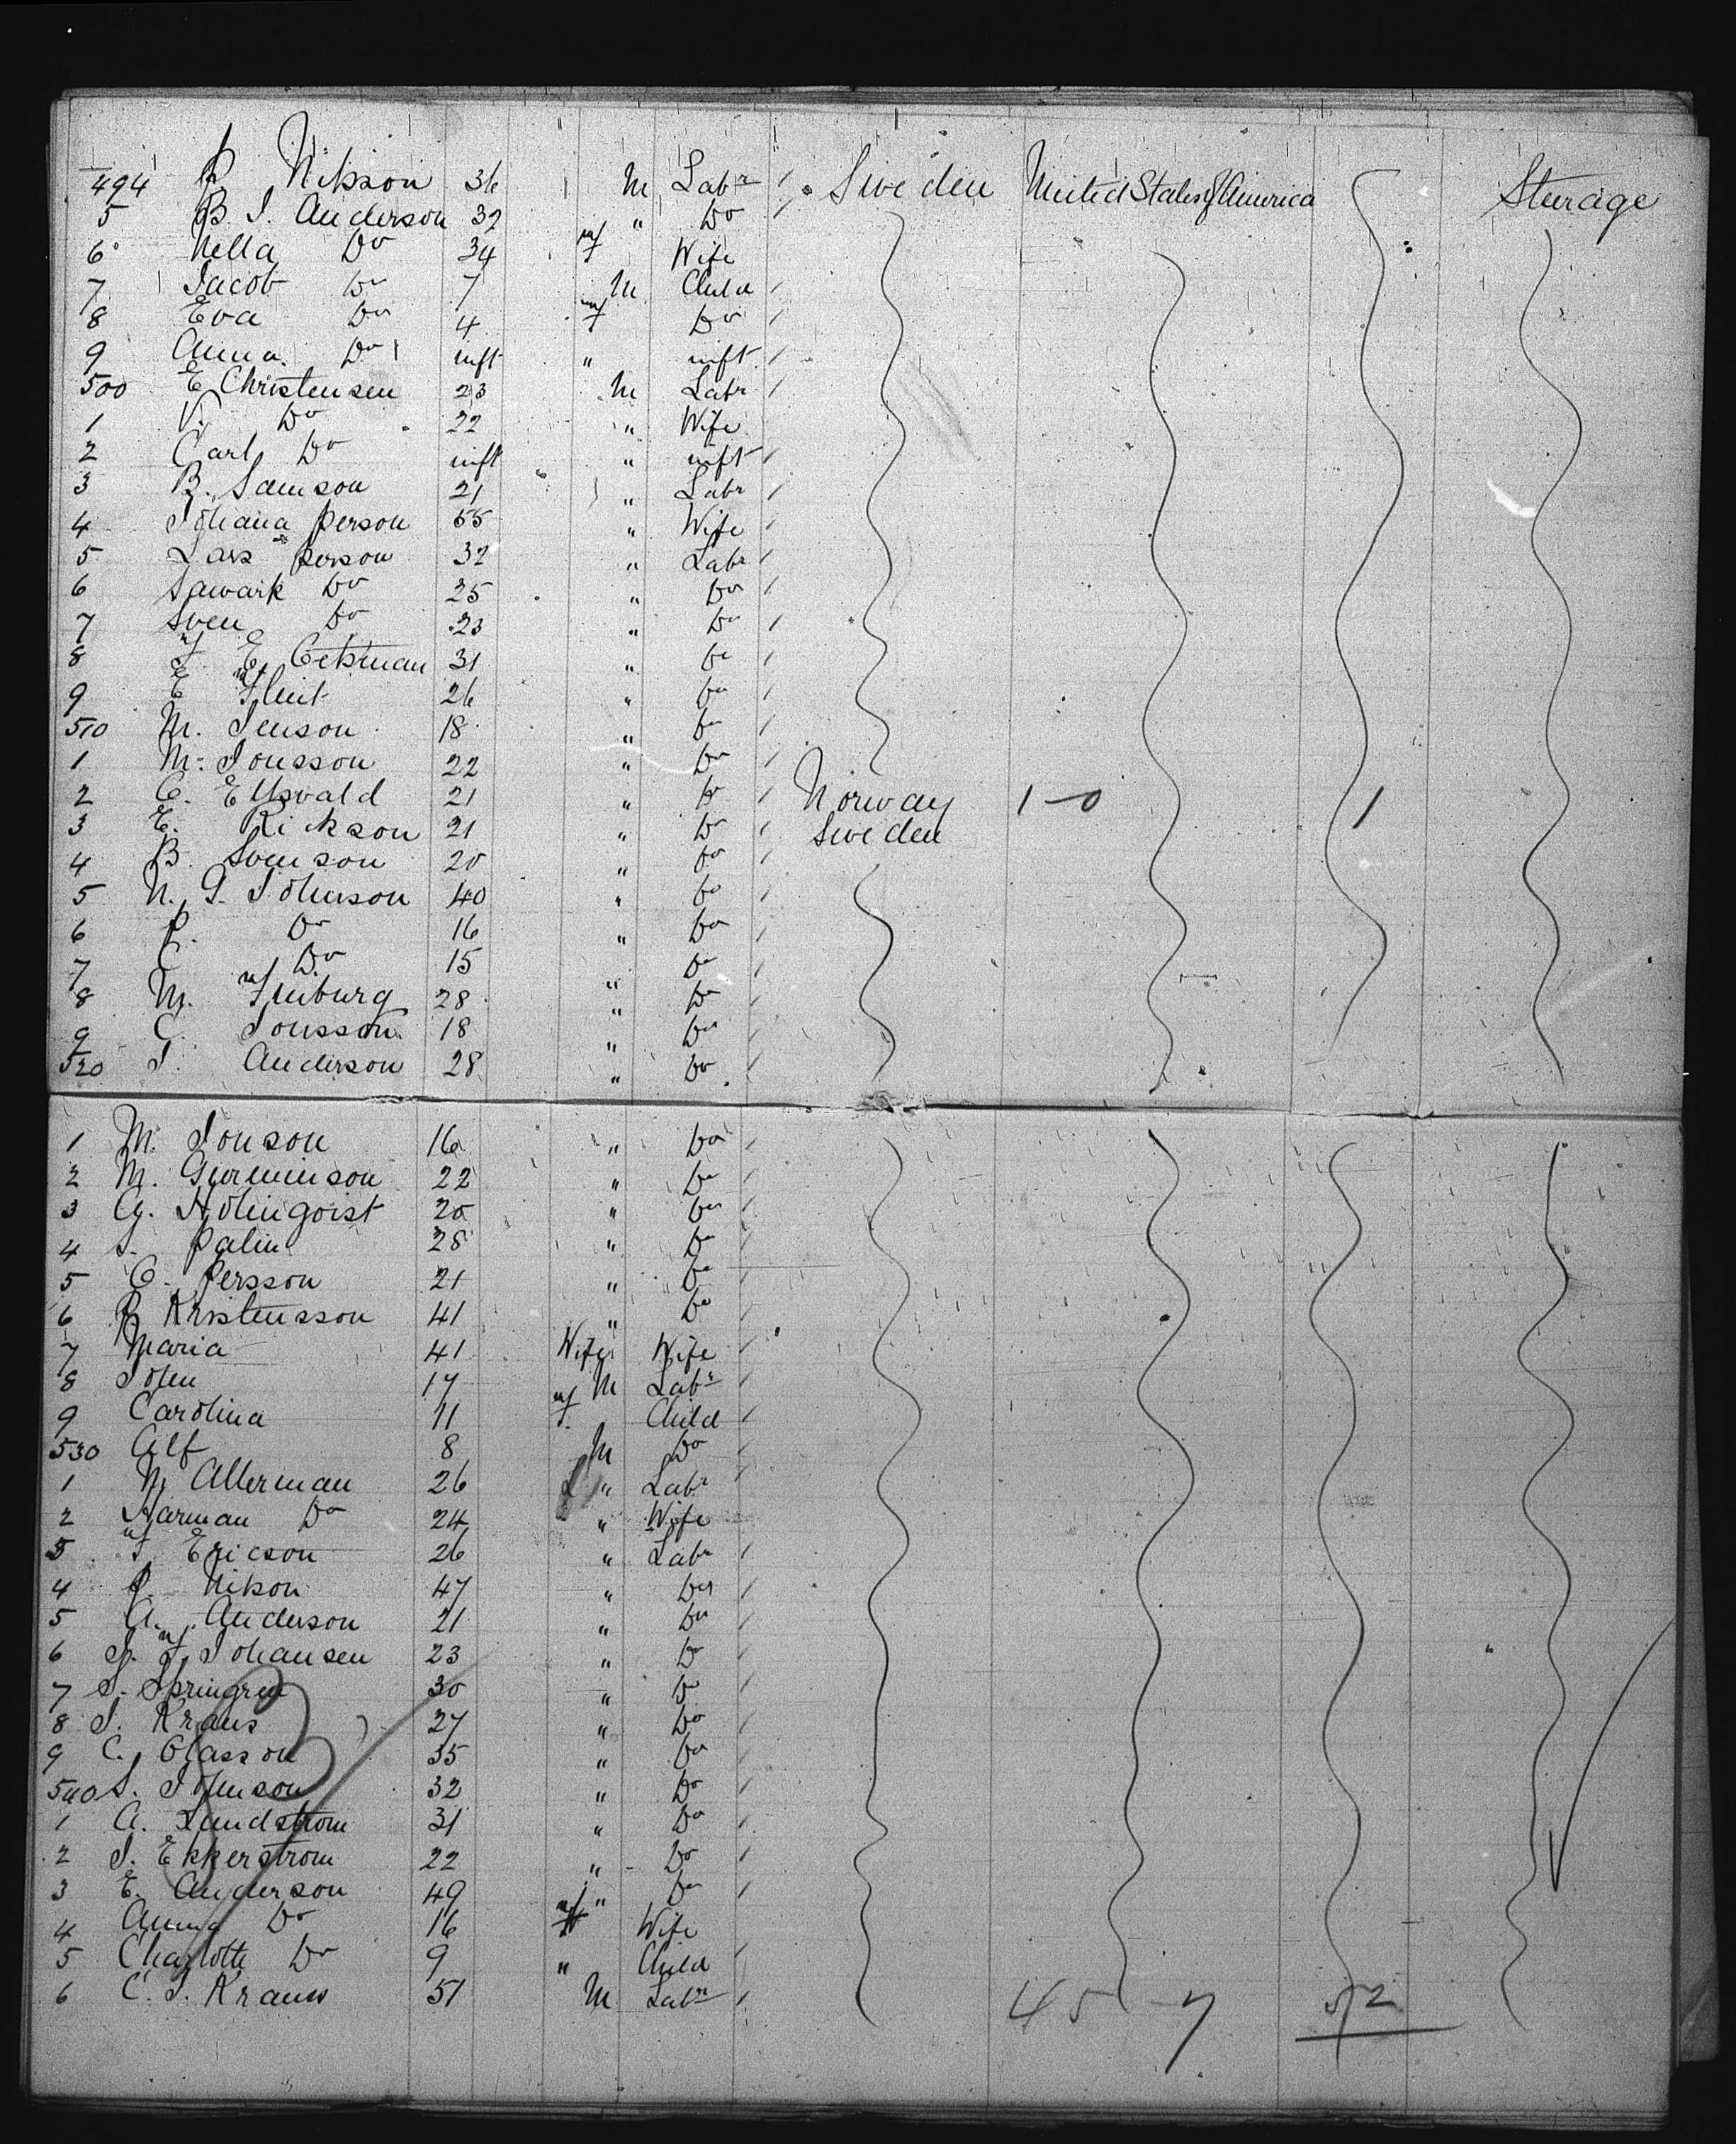 494 P. Nilsson 36 M Labr Sweden United States of America Steerage
5 B. J. Anderson 32 " Do
6 Nella Do 34 f Wife
7 Jacob Do 7 M Child
8 Eva Do 4 f Do
9 Anna Do inft " inft
500 E Christensen 23 M Labr
1 V. Do 22 " Wife
2 Carl Do inft " inft
3 B. Samson 21 " Labr
4 Johana Person 55 " Wife
5 Lars Person 32 " Labr
6 Do 25 " Do
7 Sven Do 23 " Do
8 F. E. 31 " Do
9 E Flint 26 " Do
510 M. Jenson 18 " Do
1 M. Jonsson 22 " Do
2 C. Ellsvald 21 " Do Norway 1-0 1
3 E. Rickson 21 " Do Sweden
4 B. Svenson 20 " Do
5 N. G. Johnson 40 " Do
6 P. Do 16 " Do
7 C. Do 15 " Do
8 M. Friburg 28 " Do
9 C. Jonsson 18 " Do
520 J. Anderson 28 " Do
1 M. Jonson 16 " Do
2 M. 22 " Do
3 G. Holmqvist 20 " Do
4 S. Palin 28 " Do
5 C. Persson 21 " Do
6 P Kristensson 41 " Do
7 Maria 41 Wife Wife
8 John 17 M Labr
9 Carolina 11 f. Child
530 Alf 8 M Do
1 M Allerman 26 " Labr
2 Harman Do 24 " Wife
3 F. Ericson 26 " Labr
4 P. Nilson 47 " Do
5 A. Anderson 21 " Do
6 J. F. Johansen 23 " Do
7 S. Springren 30 " Do
8 J. Kraus 27 " Do
9 C. Olasson 35 " Do
540 S. Johnson 32 " Do
1 A. Lundstrom 31 " Do
2 J. Ekkerstrom 22 " Do
3 E. Anderson 49 " Do
4 Anna Do 16 f Wife
5 Charlotte Do 9 " Child
6 C. J. Kraus 51 M Labr
45 - 7 52